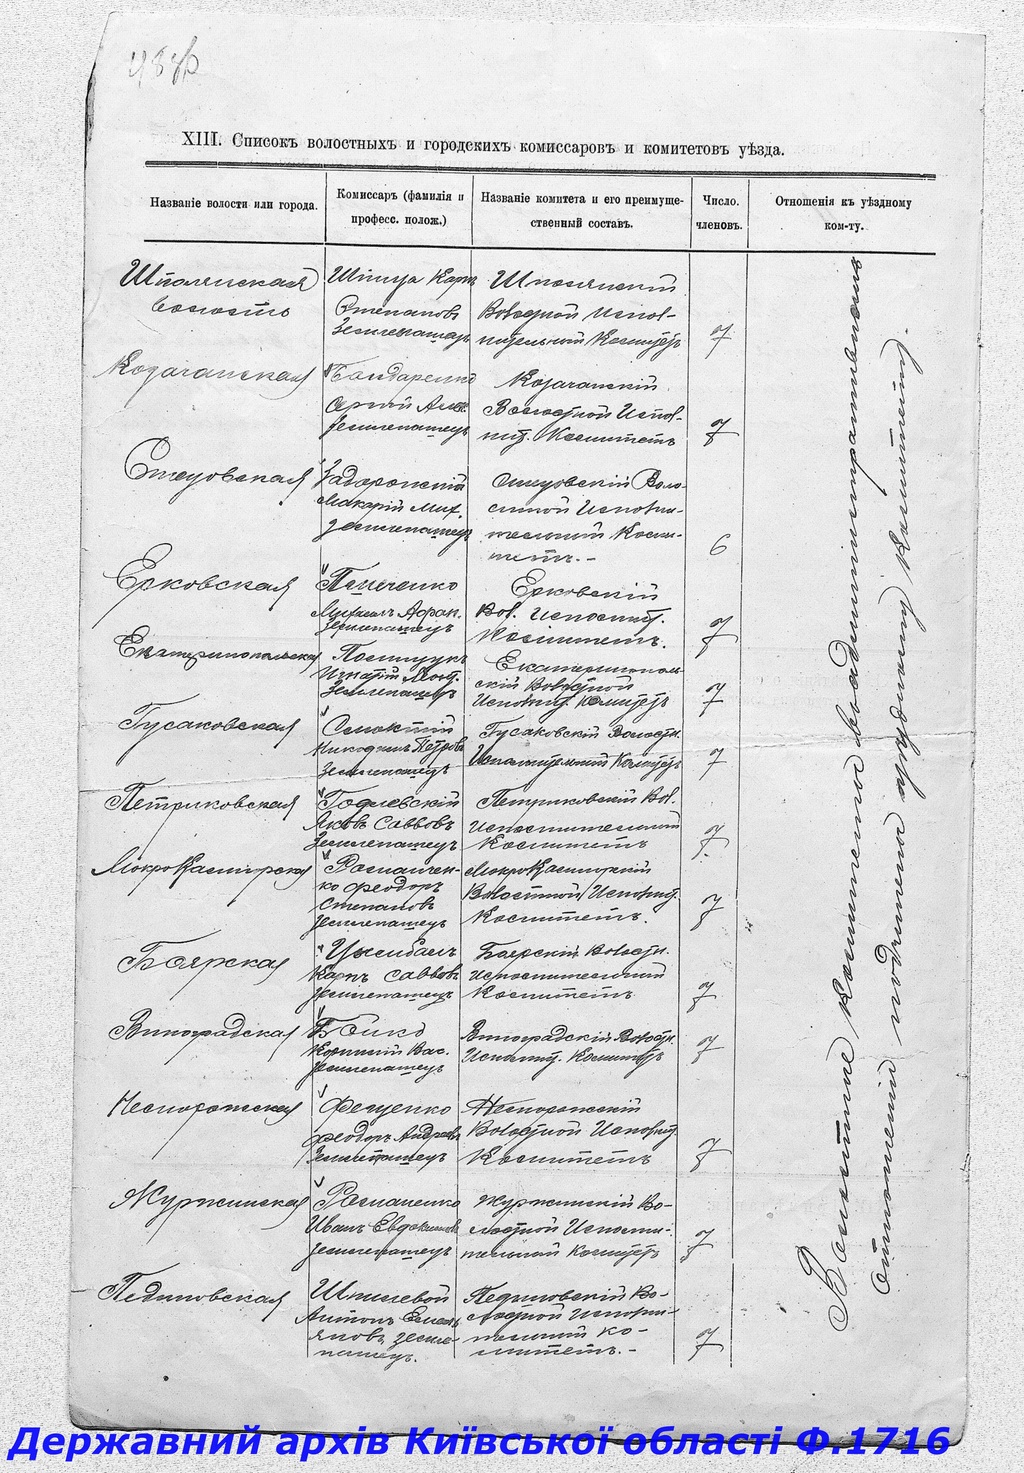 XIII. Списокъ волостныхъ и городскихъ комиссаровъ и комитетовъ уѣзда.
Названіе волости или города.
Комиссаръ (фамилія и
професс. полож.)
Названіе комитета и его преимуще-
ственный составъ.
Число.
членовъ.
Отношенія къ уѣздному
ком-ту.
Шполянская
волость
Карпъ
Степановъ
Землепашецъ
Шполянскій
Волостной Испол-
нительный Комитетъ
7
Козачанская
Бондаренко
Сергій
Землепашецъ
Козачанскій
Волостной Испол-
нит. Комитетъ
7
Стецовская
Задорожній
Макарій Мих.
Землепашецъ
Стецовскій Воло-
стной Исполни-
тельный Коми-
тетъ.-
6
Ерковская
Панченко
Михаилъ Афан.
Землепашецъ
Ерковскій
Вол. Исполнит.
Комитетъ.
7
Екатеринопольская
Полищукъ
Игнатій
Землепашецъ
Екатеринополь-
скій Волостной
Исполнит. Комитетъ
7
Гусаковская
Никодимъ Петровъ
Землепашецъ
Гусаковскій Волостн.
Исполнительный Комитетъ
7
Петриковская
Годлевскій
Яковъ Саввовъ
Землепашецъ
Петриковскій Вол.
Исполнительный
Комитетъ
7.
МокроКалигорская
Ромащен-
ко Феодоръ
Степановъ
Землепашецъ
МокроКалигорскій
Волостной Исполнит.
Комитетъ.
7
Боярская
Цымбалъ
Карпъ Саввовъ
Землепашецъ
Боярскій Волостн.
Исполнительный
Комитетъ
7
Виноградская
Бойко
Корнилій Вас.
Землепашецъ
Виноградскій Волостн.
Исполнит. Комитетъ
7
Неморожская
Феодоръ Андреевъ
Землепашецъ
Неморожскій
Волостной Исполнит.
Комитетъ
7
Журжинская
Романенко
Иванъ Евдокимовъ
Землепашецъ
Журжинскій Во-
лостной Исполни-
тельный Комитетъ
7
Пединовская
Шпилевой
Антонъ Емель-
яновъ земле-
пашецъ.
Пединовскій Во-
лостной Исполни-
тельный Ко-
митетъ.-
7
Волостные комитеты въ административномъ
отношеніи подчинены уѣздному Комитету.
Державний архів Київської області Ф.1716